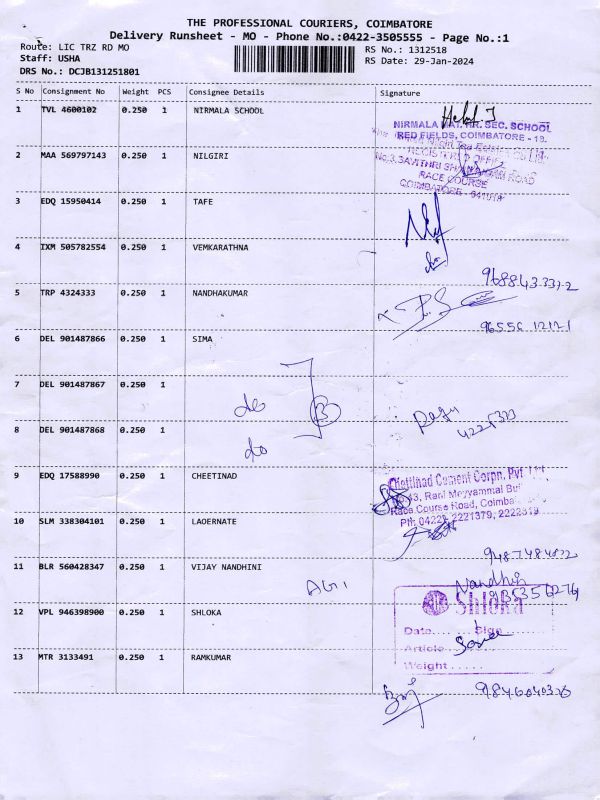 THE PROFESSIONAL COURIERS, COIMBATORE
Delivery Runsheet - MO - Phone No.:0422-3505555 - Page No.:1
Route: LIC TRZ RD MO
RS No.: 1312518
Staff: USHA
RS Date: 29-Jan-2024
DRS No.: DCJB131251801
S No Consignment No Weight PCS Consignee Details Signature
1 TVL 4600102 0.250 1 NIRMALA SCHOOL
NIRMALA MAT. HR. SEC. SCHOOL
RED FIELDS, COIMBATORE - 18.
2 MAA 569797143 0.250 1 NILGIRI
REGISTERED OFFICE
RACE COURSE
3 EDQ 15950414 0.250 1 TAFE
4 IXM 505782554 0.250 1 VEMKARATHNA
5 TRP 4324333 0.250 1 NANDHAKUMAR
96556 12121
6 DEL 901487866 0.250 1 SIMA
7 DEL 901487867 0.250 1
do
3
8 DEL 901487868 0.250 1
do
9 EDQ 17588990 0.250 1 CHEETINAD
Chettinad Cement Corpn. Pvt
Race Course Road, Coimba
2221379, 2222319
10 SLM 338304101 0.250 1 LAOERNATE
11 BLR 560428347 0.250 1 VIJAY NANDHINI
12 VPL 946398900 0.250 1 SHLOKA
Shloka
Date..... Sign
Article
Weight.....
13 MTR 3133491 0.250 1 RAMKUMAR